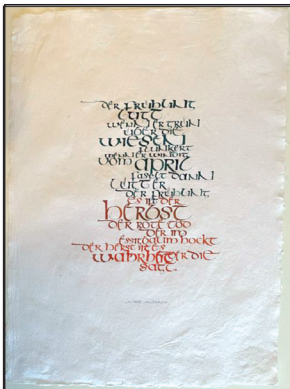 der frühling
lügt
wenn er grün
über die
wiesen
flunkert
wenn er windig
vom april
faselt dann
lügt er
der frühling
es ist der
herbst
der rote tod
der im
essigbaum hockt
der herbst ist es
wahrhaftig der die
sagt